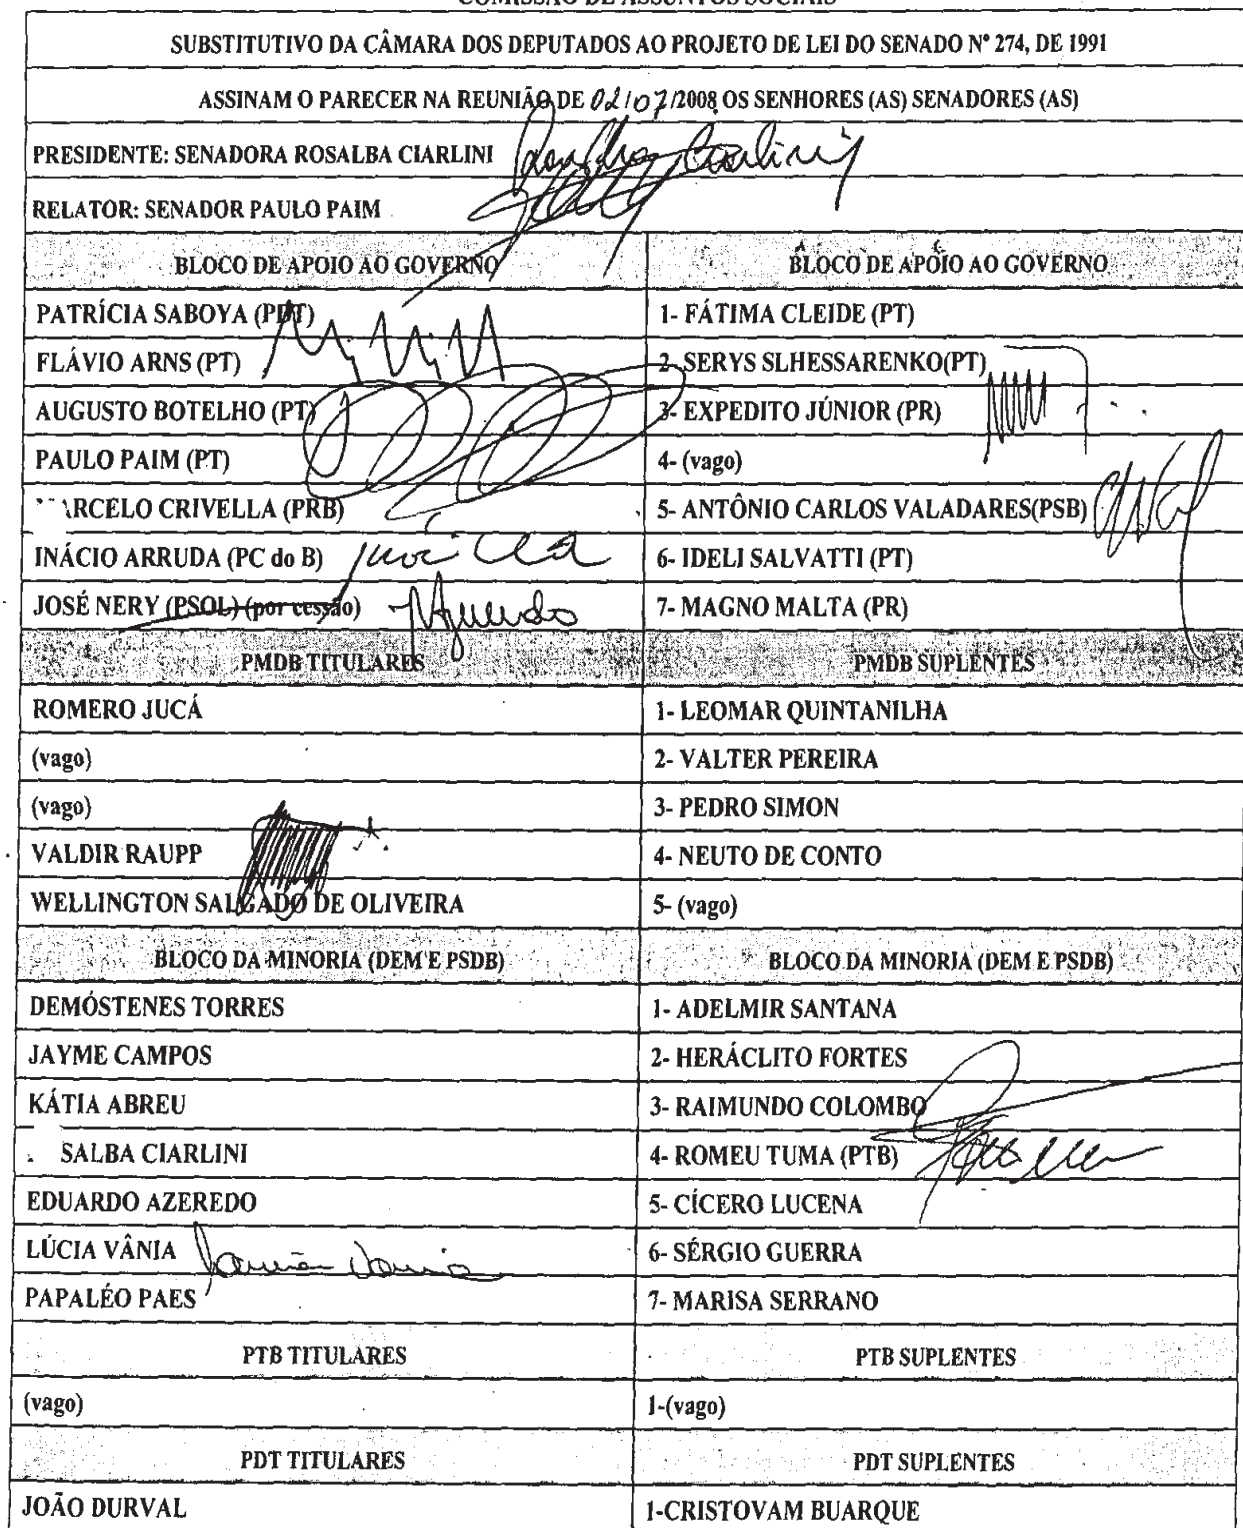 COMISSÃO DE ASSUNTOS SOCIAIS
SUBSTITUTIVO DA CÂMARA DOS DEPUTADOS AO PROJETO DE LEI DO SENADO Nº 274, DE 1991
ASSINAM O PARECER NA REUNIÃO DE 02/07/2008 OS SENHORES (AS) SENADORES (AS)
PRESIDENTE: SENADORA ROSALBA CIARLINI
RELATOR: SENADOR PAULO PAIM
BLOCO DE APOIO AO GOVERNO BLOCO DE APOIO AO GOVERNO
PATRÍCIA SABOYA (PDT) 1- FÁTIMA CLEIDE (PT)
FLÁVIO ARNS (PT) 2- SERYS SLHESSARENKO(PT)
AUGUSTO BOTELHO (PT) 3- EXPEDITO JÚNIOR (PR)
PAULO PAIM (PT) 4- (vago)
MARCELO CRIVELLA (PRB) 5- ANTÔNIO CARLOS VALADARES(PSB)
INÁCIO ARRUDA (PC do B) 6- IDELI SALVATTI (PT)
JOSÉ NERY (PSOL) (por cessão) 7- MAGNO MALTA (PR)
PMDB TITULARES PMDB SUPLENTES
ROMERO JUCÁ 1- LEOMAR QUINTANILHA
(vago) 2- VALTER PEREIRA
(vago) 3- PEDRO SIMON
VALDIR RAUPP 4- NEUTO DE CONTO
WELLINGTON SALGADO DE OLIVEIRA 5- (vago)
BLOCO DA MINORIA (DEM E PSDB) BLOCO DA MINORIA (DEM E PSDB)
DEMÓSTENES TORRES 1- ADELMIR SANTANA
JAYME CAMPOS 2- HERÁCLITO FORTES
KÁTIA ABREU 3- RAIMUNDO COLOMBO
SALBA CIARLINI 4- ROMEU TUMA (PTB)
EDUARDO AZEREDO 5- CÍCERO LUCENA
LÚCIA VÂNIA 6- SÉRGIO GUERRA
PAPALÉO PAES 7- MARISA SERRANO
PTB TITULARES PTB SUPLENTES
(vago) 1-(vago)
PDT TITULARES PDT SUPLENTES
JOÃO DURVAL 1-CRISTOVAM BUARQUE